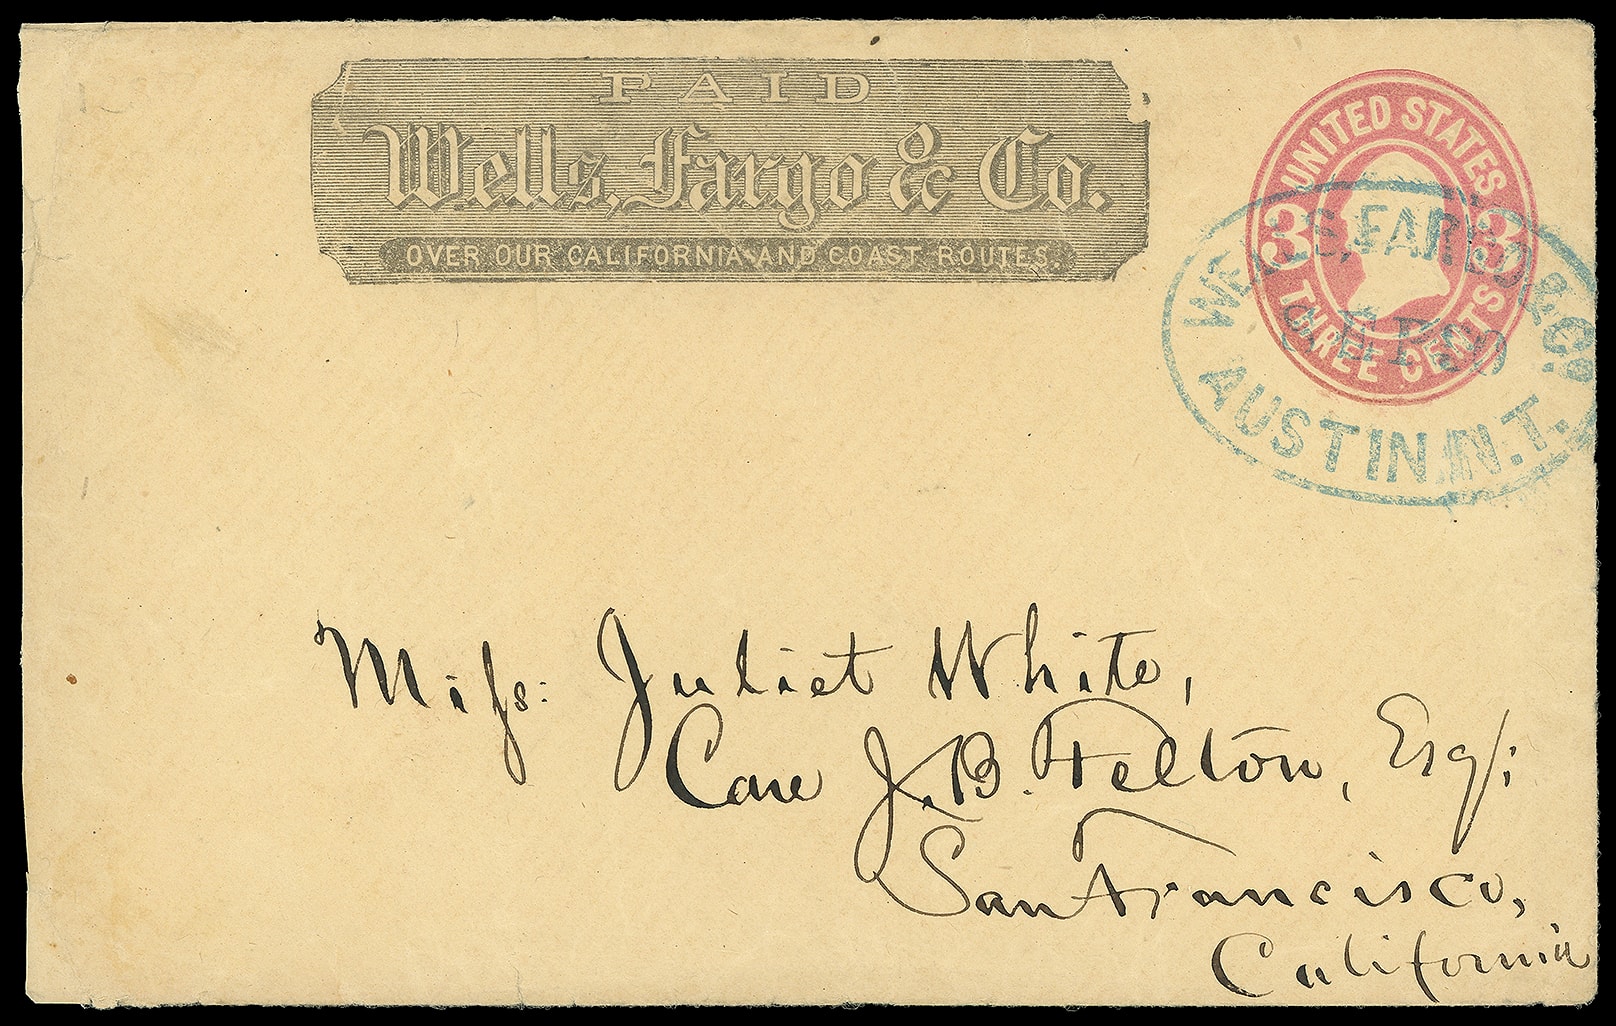 PAID
Wells, Fargo & Co.
OVER OUR CALIFORNIA AND COAST ROUTES.
UNITED STATES
3 3
THREE CENTS
WELLS, FARGO & CO.
SEP 20
AUSTIN, N.T.
Miss: Juliet White,
Care J. B. Felton, Esq:
San Francisco,
California